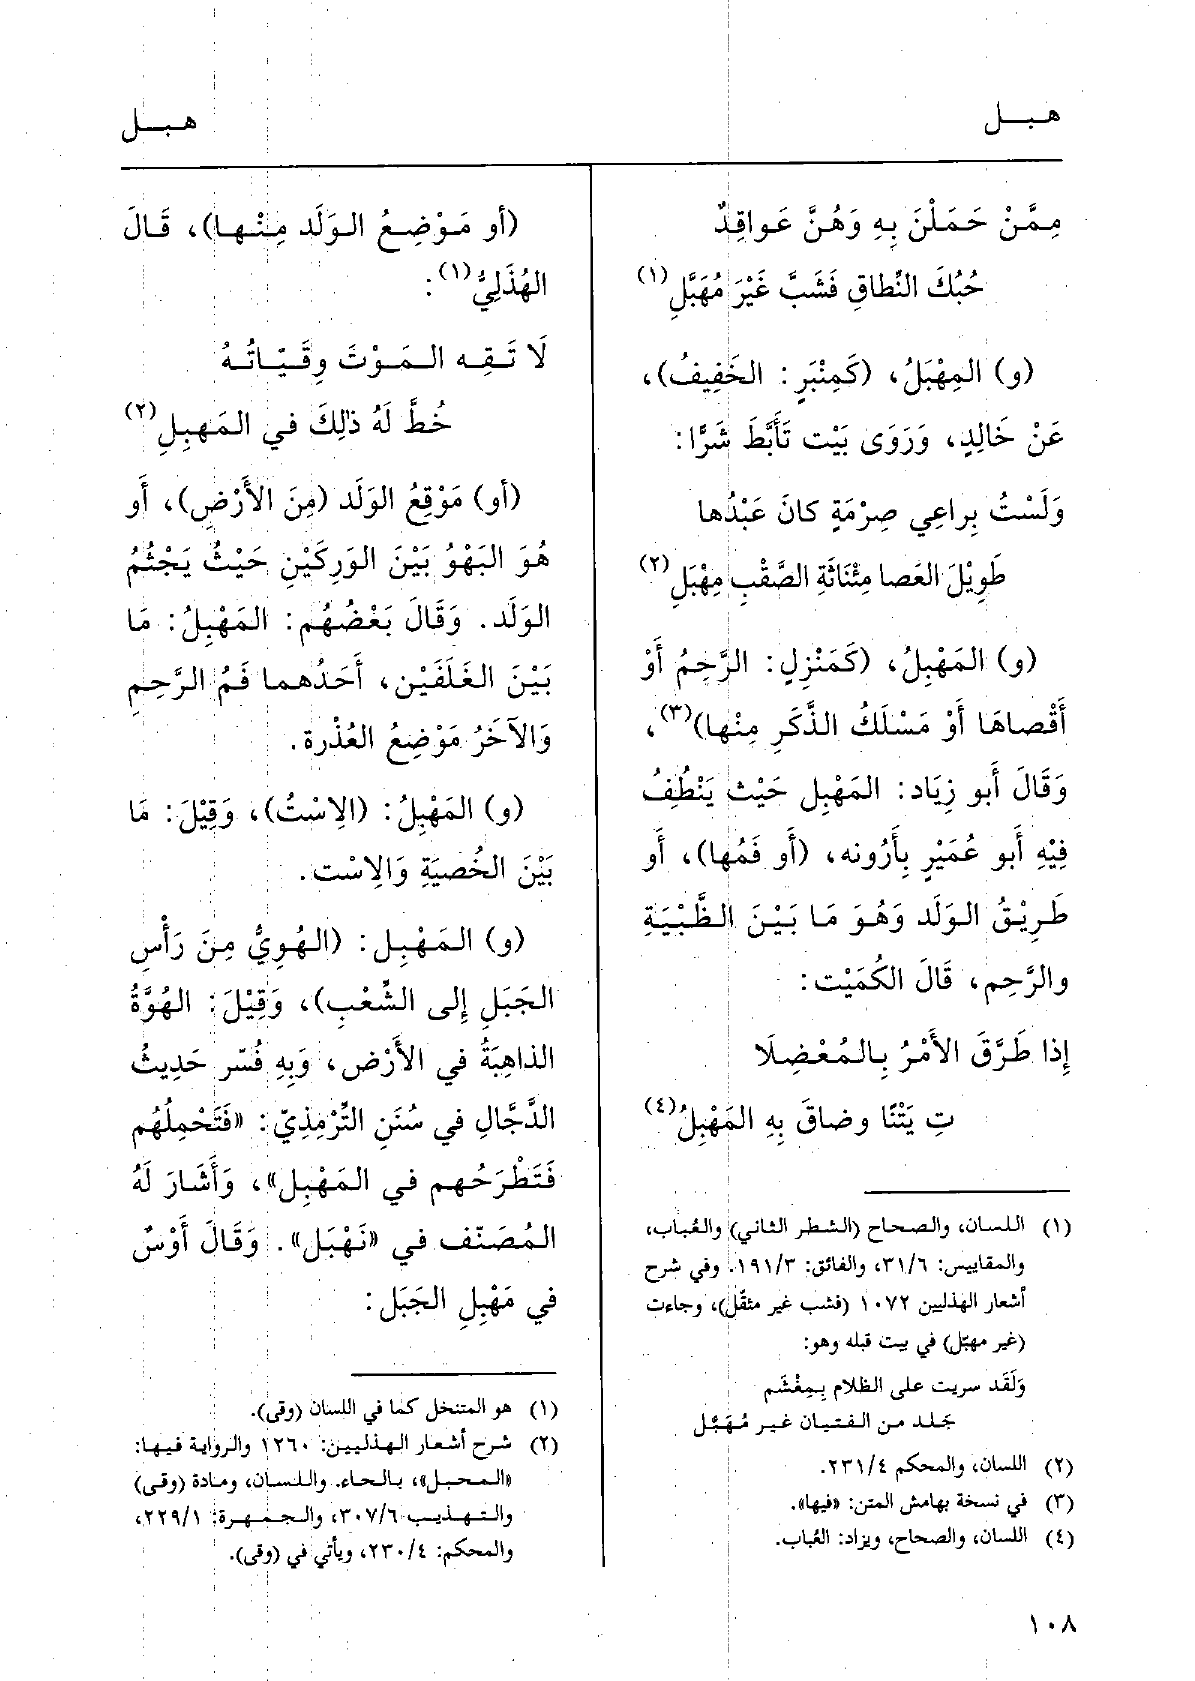 هبـل
هبـل
مِمَّنْ حَمَلْنَ بِهِ وَهُنَّ عَواقِدٌ
حُبُكَ النِّطاقِ فَشَبَّ غَيْرَ مُهَبَّلِ(١)
(و) المِهْبَلُ، (كَمِنْبَرٍ: الخَفِيفُ)،
عَنْ خَالِدٍ، وَرَوَى بَيْت تَأَبَّطَ شَرًّا:
وَلَسْتُ بِراعِي صِرْمَةٍ كانَ عَبْدُها
طَوِيْلَ العَصا مِئْنَاثَةِ الصَّقْبِ مِهْبَلِ(٢)
(و) المَهْبِلُ، (كَمَنْزِلٍ: الرَّحِمُ أَوْ
أَقْصاهَا أَوْ مَسْلَكُ الذَّكَرِ مِنْها)(٣)،
وَقَالَ أَبو زِيَاد: المَهْبِل حَيْث يَنْطِفُ
فِيْهِ أَبو عُمَيْرٍ بِأَرُونه، (أَو فَمُها)، أَو
طَرِيْقُ الوَلَد وَهُوَ مَا بَيْنَ الظَّبْيَةِ
والرَّحِم، قَالَ الكُمَيْت:
إِذا طَرَّقَ الأَمْرُ بِالمُعْضِلَا
تِ يَتْنًا وضاقَ بِهِ المَهْبِلُ(٤)
(١) اللسان، والصحاح (الشطر الثاني) والعُباب،
والمقاييس: ٣١/٦، والفائق: ١٩١/٣. وفي شرح
أشعار الهذليين ١٠٧٢ (فشب غير مثقَّل)، وجاءت
(غير مهبّل) في بيت قبله وهو:
وَلَقَد سريت على الظلام بِمِغْشَم
جَلد من الفتيان غير مُهَبَّل
(٢) اللسان، والمحكم ٢٣١/٤.
(٣) في نسخة بهامش المتن: «فيها».
(٤) اللسان، والصحاح، ويزاد: العُباب.
(أو مَوْضِعُ الوَلَد مِنْها)، قَالَ
الهُذَلِيُّ(١):
لَا تَقِه المَوْتَ وِقَيّاتُهُ
خُطَّ لَهُ ذٰلِكَ في المَهبِلِ(٢)
(أَو) مَوْقِعُ الوَلَد (مِنَ الأَرْضِ)، أَو
هُوَ البَهْوُ بَيْنَ الوَرِكَيْنِ حَيْثُ يَجْثُمُ
الوَلَد. وَقَالَ بَعْضُهُم: المَهْبِلُ: مَا
بَيْنَ الغَلَفَيْن، أَحَدُهما فَمُ الرَّحِمِ
وَالآخَرُ مَوْضِعُ العُذْرة.
(و) المَهْبِلُ: (الِاسْتُ)، وَقِيْلَ: مَا
بَيْنَ الخُصيَةِ وَالِاسْت.
(و) المَهْبِل: (الهُوِيُّ مِنَ رَأْسِ
الجَبَلِ إِلى الشِّعْبِ)، وَقِيْلَ: الهُوَّةُ
الذاهِبَةُ في الأَرْض، وَبِهِ فُسّر حَدِيثُ
الدَّجَّالِ في سُنَنِ التِّرْمِذِيّ: «فَتَحْمِلُهُم
فَتَطْرَحُهم في المَهْبِل»، وَأَشَارَ لَهُ
المُصَنّف في «نَهْبَل». وَقَالَ أَوْسٌ
في مَهْبِلِ الجَبَل:
(١) هو المتنخل كما في اللسان (وقى).
(٢) شرح أشعار الهذليين: ١٢٦٠ والرواية فيها:
«المحبل»، بالحاء. واللسان، ومادة (وقى)
والتهذيب ٣٠٧/٦، والجمهرة: ٢٢٩/١،
والمحكم: ٢٣٠/٤، ويأتي في (وقى).
١٠٨